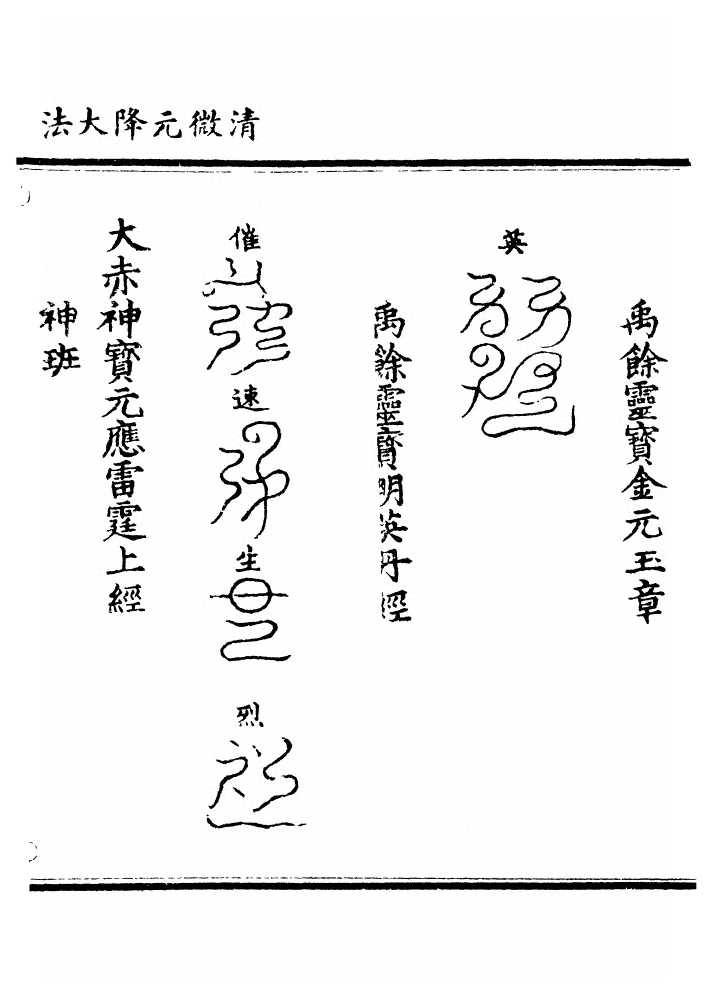 清微元降大法
禹餘靈寶金元玉章
英
禹餘靈寶明英丹經
催
速
生
烈
大赤神寶元應雷霆上經
神班